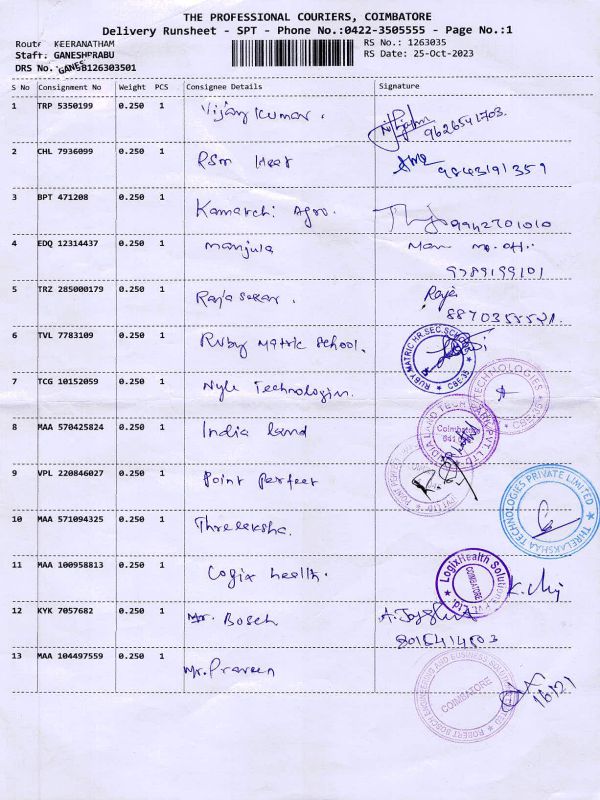 THE PROFESSIONAL COURIERS, COIMBATORE
Delivery Runsheet - SPT - Phone No.:0422-3505555 - Page No.:1
Route KEERANATHAM RS No.: 1263035
Staff: GANESHPRABU RS Date: 25-Oct-2023
DRS No. 126303501
S No Consignment No Weight PCS Consignee Details Signature
1 TRP 5350199 0.250 1 Vijay Kumar.
9626541703.
2 CHL 7936099 0.250 1 RSM Heat
9843191359
3 BPT 471208 0.250 1 Kamarchi Agro. 9942701010
4 EDQ 12314437 0.250 1 Manjula
9789199101
5 TRZ 285000179 0.250 1 Raja Sekar. Raja
6 TVL 7783109 0.250 1 Ruby Matric School. RUBY MATRIC HR.SEC.SCHOOL CBE-35
7 TCG 10152059 0.250 1 Nyle Technologies. TECHNOLOGIES CBE-35
8 MAA 570425824 0.250 1 India Land Coimbatore
9 VPL 220846027 0.250 1 Point Perfect
10 MAA 571094325 0.250 1 Threlaksha. THRELAKSHAA TECHNOLOGIES PRIVATE LIMITED
11 MAA 100958813 0.250 1 Cogix health. LogixHealth Solutions Pvt. Ltd. COIMBATORE
12 KYK 7057682 0.250 1 Mr. Bosch
8015414503
13 MAA 104497559 0.250 1 Mr. Praveen
ROBERT BOSCH ENGINEERING AND BUSINESS SOLUTIONS LIMITED COIMBATORE